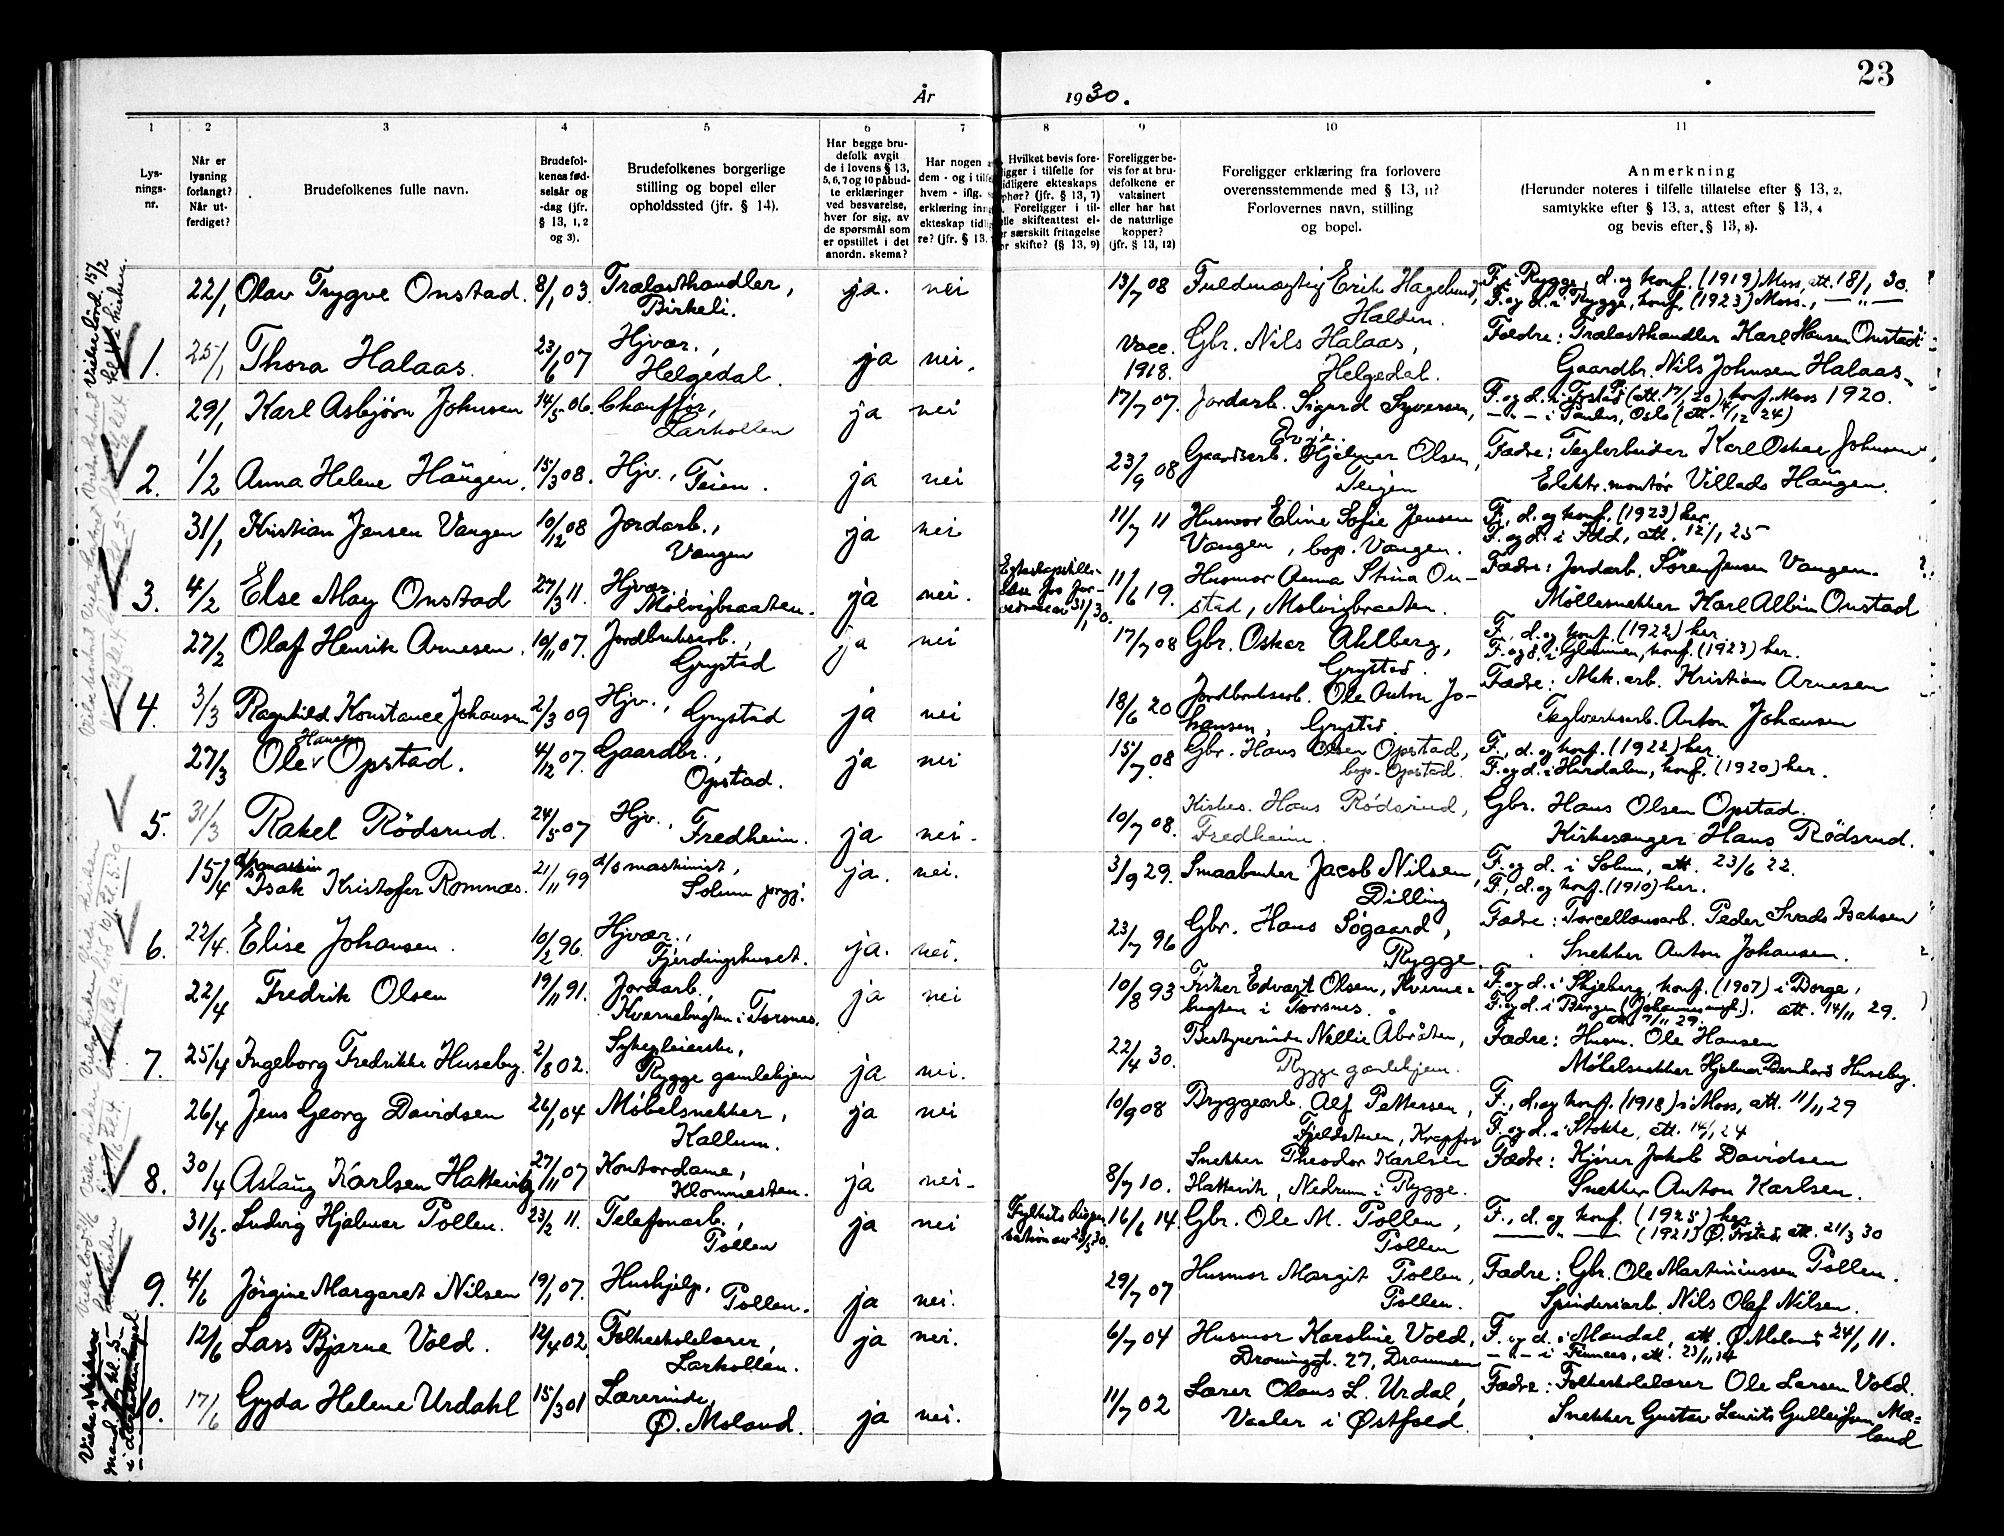 23
År 1930.
1 2 3 4 5 6 7 8 9 10 11
Lys-
nings-
nr.
Når er
lysning
forlangt?
Når ut-
ferdiget?
Brudefolkenes fulle navn.
Brudefol-
kenes fød-
selsår og
-dag (jfr.
§ 13, 1, 2
og 3).
Brudefolkenes borgerlige
stilling og bopel eller
opholdssted (jfr. § 14).
Har begge bru-
defolk avgit
de i lovens § 13,
5, 6, 7 og 10 påbud-
te erklæringer
ved besvarelse,
hver for sig, av
de spørsmål som
er opstillet i det
anordn. skema?
Har nogen a
dem - og i tilfe
hvem - iflg. s
erklæring inng
ekteskap tidlig
re? (jfr. § 13,
Hvilket bevis fore-
ligger i tilfelle for
tidligere ekteskaps
ophør? (jfr. § 13, 7)
Foreligger i til-
elle skifteattest el-
r særskilt fritagelse
or skifte? (§ 13, 9)
Foreligger be-
vis for at bru-
defolkene er
vaksinert
eller har hat
de naturlige
kopper?
(jfr. § 13, 12)
Foreligger erklæring fra forlovere
overensstemmende med § 13, 11?
Forlovernes navn, stilling
og bopel.
Anmerkning
(Herunder noteres i tilfelle tillatelse efter § 13, 2,
samtykke efter § 13, 3, attest efter § 13, 4
og bevis efter § 13, 8).
22/1 Olav Trygve Onstad. 8/1 03. Trælasthandler, Birkeli. ja. nei 13/7 08 Fuldmægtig Erik Hagelund, Halden. F. i Rygge, d. og konf. (1919) Moss, att. 18/1 30.
F. og d. i Rygge, konf. (1923) Moss., — " —
1. 25/1 Thora Halaas. 23/6 07 Hjvær., Helgedal. ja nei. Vacc. 1918. Gbr. Nils Halaas, Helgedal. Fædre: Trælasthandler Karl Hansen Onstad
Gaardbr. Nils Johnsen Halaas.
29/1 Karl Asbjørn Johnsen 14/5 06. Chauffør, Larkollen ja nei 17/7 07. Jordarb. Sigurd Syversen, Evje. F. og d. i Frstad (att. 17/1 20), konf. Moss 1920.
— " — i Paulus, Oslo (att. 4/12 24)
2. 1/2 Anna Helene Haugen. 15/3 08. Hjv., Feien. ja nei 23/9 08 Gaardsarb. Hjelmer Olsen, Teigen Fædre: Teglarbeider Karl Oskar Johnsen,
Elektr. montør Villads Haugen.
31/1 Kristian Jensen Vangen 10/12 08 Jordarb., Vangen ja nei 11/7 11 Husmor Eline Sofie Jensen
Vangen, bop. Vangen. F., d. og konf. (1923) her.
F. og d. i Fdd, att. 12/1 25
3. 4/2 Else May Onstad 27/3 11. Hjvær., Mølvigbraaten. ja nei. 31/1 30. 11/6 19. Husmor Anna Stina On-
stad, Molvigbraaten. Fædre: Jordarb. Søren Jensen Vangen.
Møllesnekker Karl Albin Onstad
27/2 Olaf Henrik Arnesen. 10/11 07. Jordbruksarb., Grystad ja nei 17/7 08 Gbr. Oskar Ahlberg, Grystad. F., d. og konf. (1922) her
F. og d. i Glemmen, konf. (1923) her.
4. 3/3 Ragnhild Konstance Johansen 2/3 09 Hjv., Grystad ja nei 18/6 20 Jordbruksarb. Ole Anton Jo-
hansen, Grystad. Fædre: Mek. arb. Kristian Arnesen
Teglverksarb. Anton Johansen
27/3 Ole Hansen Opstad. 4/12 07. Gaardbr., Opstad. ja nei 15/7 08. Gbr. Hans Olsen Opstad, bop. Opstad. F., d. og konf. (1922) her.
F. og d. i Hurdalen, konf. (1920) her.
5. 31/3 Rakel Rödsrud. 24/5 07 Hjv., Fredheim. ja nei. 10/7 08. Kirkes. Hans Rödsrud,
Fredheim. Gbr. Hans Olsen Opstad.
Kirkesanger Hans Rødsrud.
15/4 Isak Kristofer Romnæs. 21/11 99 d/s maskinist, Solum prgj. ja. nei. 3/9 29. Smaabruker Jacob Nilsen, Dilling F. og d. i Solum, att. 23/6 22.
F., d. og konf. (1910) her.
6. 22/4. Elise Johansen. 10/2 96. Hjvær., Fjerdingshuset. ja. nei. 23/7 96 Gbr. Hans Søgaard, Rygge. Fædre: Porcellænsarb. Peder Isaksen
Snekker Anton Johansen.
22/4 Fredrik Olsen 19/11 91. Jordarb., Kvernebugten i Torsnes. ja nei 10/8 93 Fisker Edvart Olsen, Kverne-
bugten i Torsnes. F. og d. i Skjeberg, konf. (1907) i Borge, att. 14/11 29.
F. og d. i Bergen (Johannesmgh.). att. 7/11 29.
7. 25/4 Ingeborg Fredrikke Huseby. 2/8 02. Sykepleierske, Rygge gamlehjem ja nei. 22/4 30. Bestyrerinde Nellie Åbråten,
Rygge gamlehjem. Fædre: Husm. Ole Hansen
Møbelsnekker Hjelmar Bernhard Huseby.
26/4 Jens Georg Davidsen 26/1 04 Møbelsnekker, Kallum. ja nei 10/9 08 Bryggearb. Alf Pettersen, Fjeldstuen, Krapfos F., d. og konf. (1918) i Moss, att. 11/11 29
F. og d. i Stokke, att. 14/1 24
8. 30/4 Aslaug Karlsen Hattevig 27/11 07 Kontordame, Klommesten. ja nei. 8/7 10. Snekker Theodor Karlsen
Hattevik, Nedrum i Rygge. Fædre: Kjører Jakob Davidsen
Snekker Anton Karlsen.
31/5. Ludvig Hjalmar Pollen. 23/2 11. Telefonarb., Pollen ja nei 16/6 14. Gbr. Ole M. Pollen, Pollen F., d. og konf. (1925) her.
— " — (1921) Ø. Frstad, att. 21/3 30
9. 4/6 Jørgine Margaret Nilsen 19/1 07. Hushjelp, Pollen. ja nei. 29/7 07 Husmor Margit Pollen, Pollen. Fædre: Gbr. Ole Martiniussen Pollen.
Spinderiarb. Nils Olaf Nilsen.
12/6 Lars Bjarne Vold. 12/4 02. Folkeskolelærer, Larkollen. ja nei. 6/7 04 Husmor Karoline Vold,
Dronninggt. 27, Drammen F. og d. i Mandal, att. Ø Moland 24/1 11.
— " — i Finnees, att. 23/11 14
10. 17/6 Gyda Helene Urdahl 15/3 01 Lærerinde, Ø. Moland. ja nei. 11/7 02 Lærer Olaus L. Urdal,
Vaaler i Østfold. Fædre: Folkeskolelærer Ole Larsen Vold.
Snekker Gustav Laurits Gulleifsen Mæ-
land